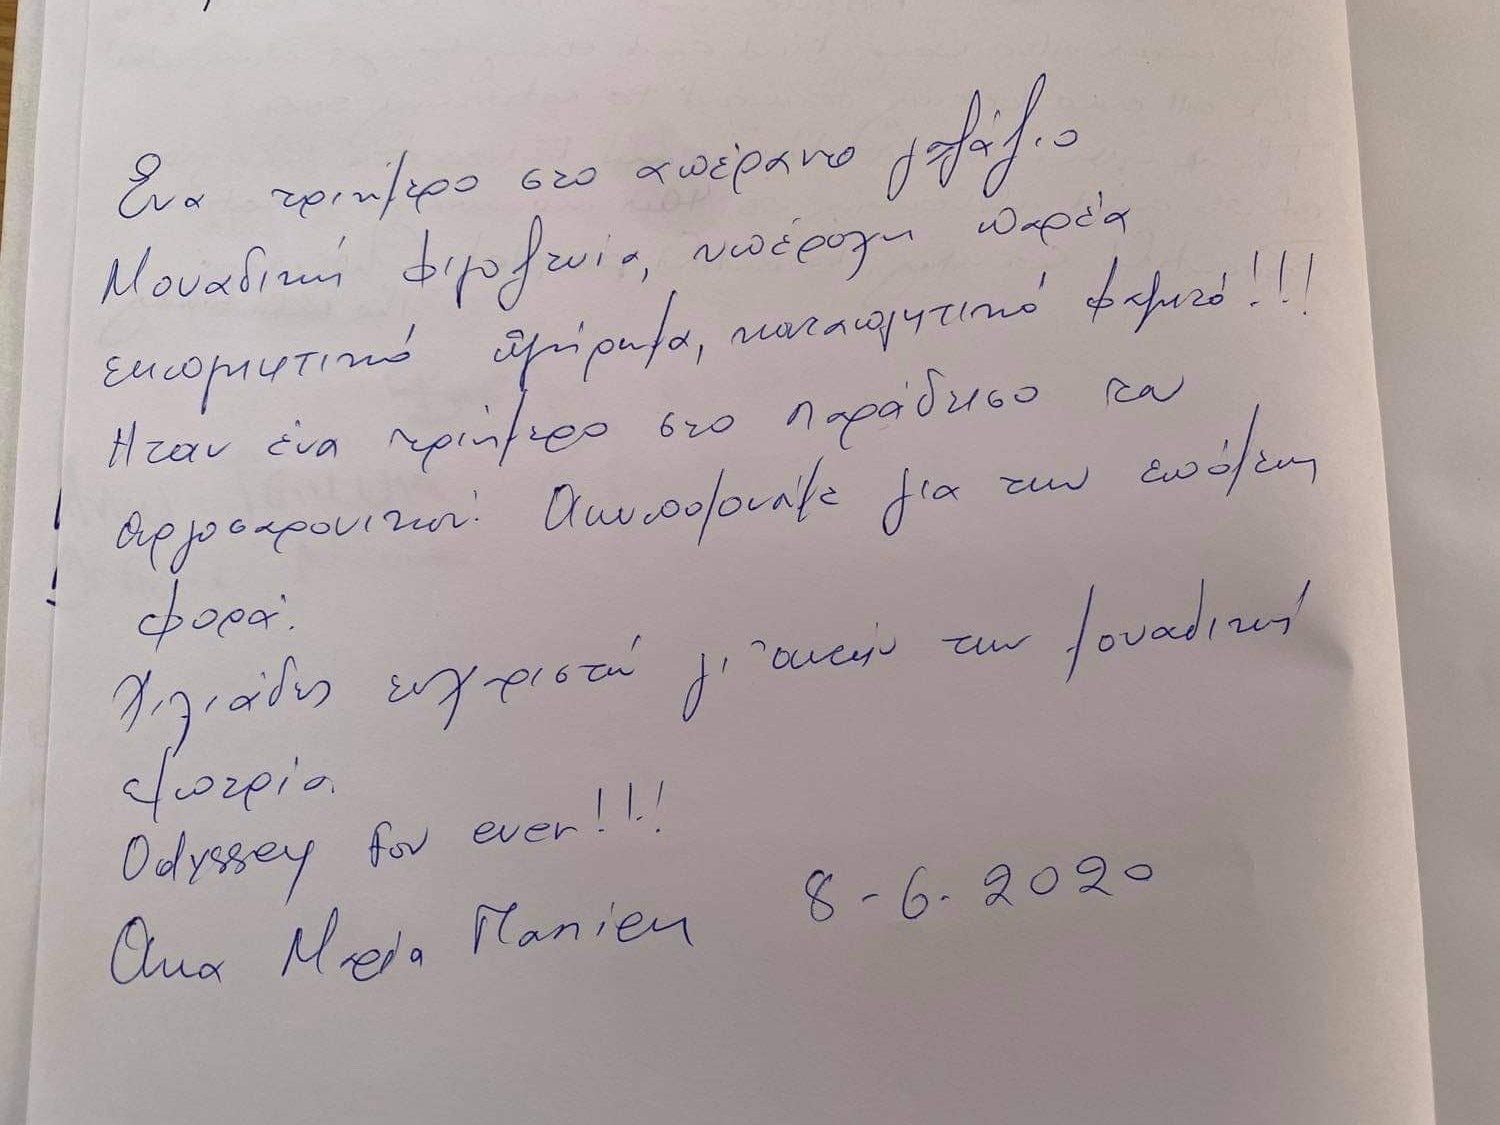 Ένα τριήμερο στο απέραντο γαλάζιο
Μοναδική φιλοξενία, υπέροχη παρέα
εκπληκτικό πλήρωμα, καταπληκτικό φαγητό!!!
Ηταν ένα τριήμερο στο παράδεισο του
αργοσαρονικού! Ανυπομονούμε για την επόμενη
φορά!
Χιλιάδες ευχαριστώ γι' αυτήν την μοναδική
εμπειρία
Odyssey for ever!!!
Άννα Μαρία 8-6-2020